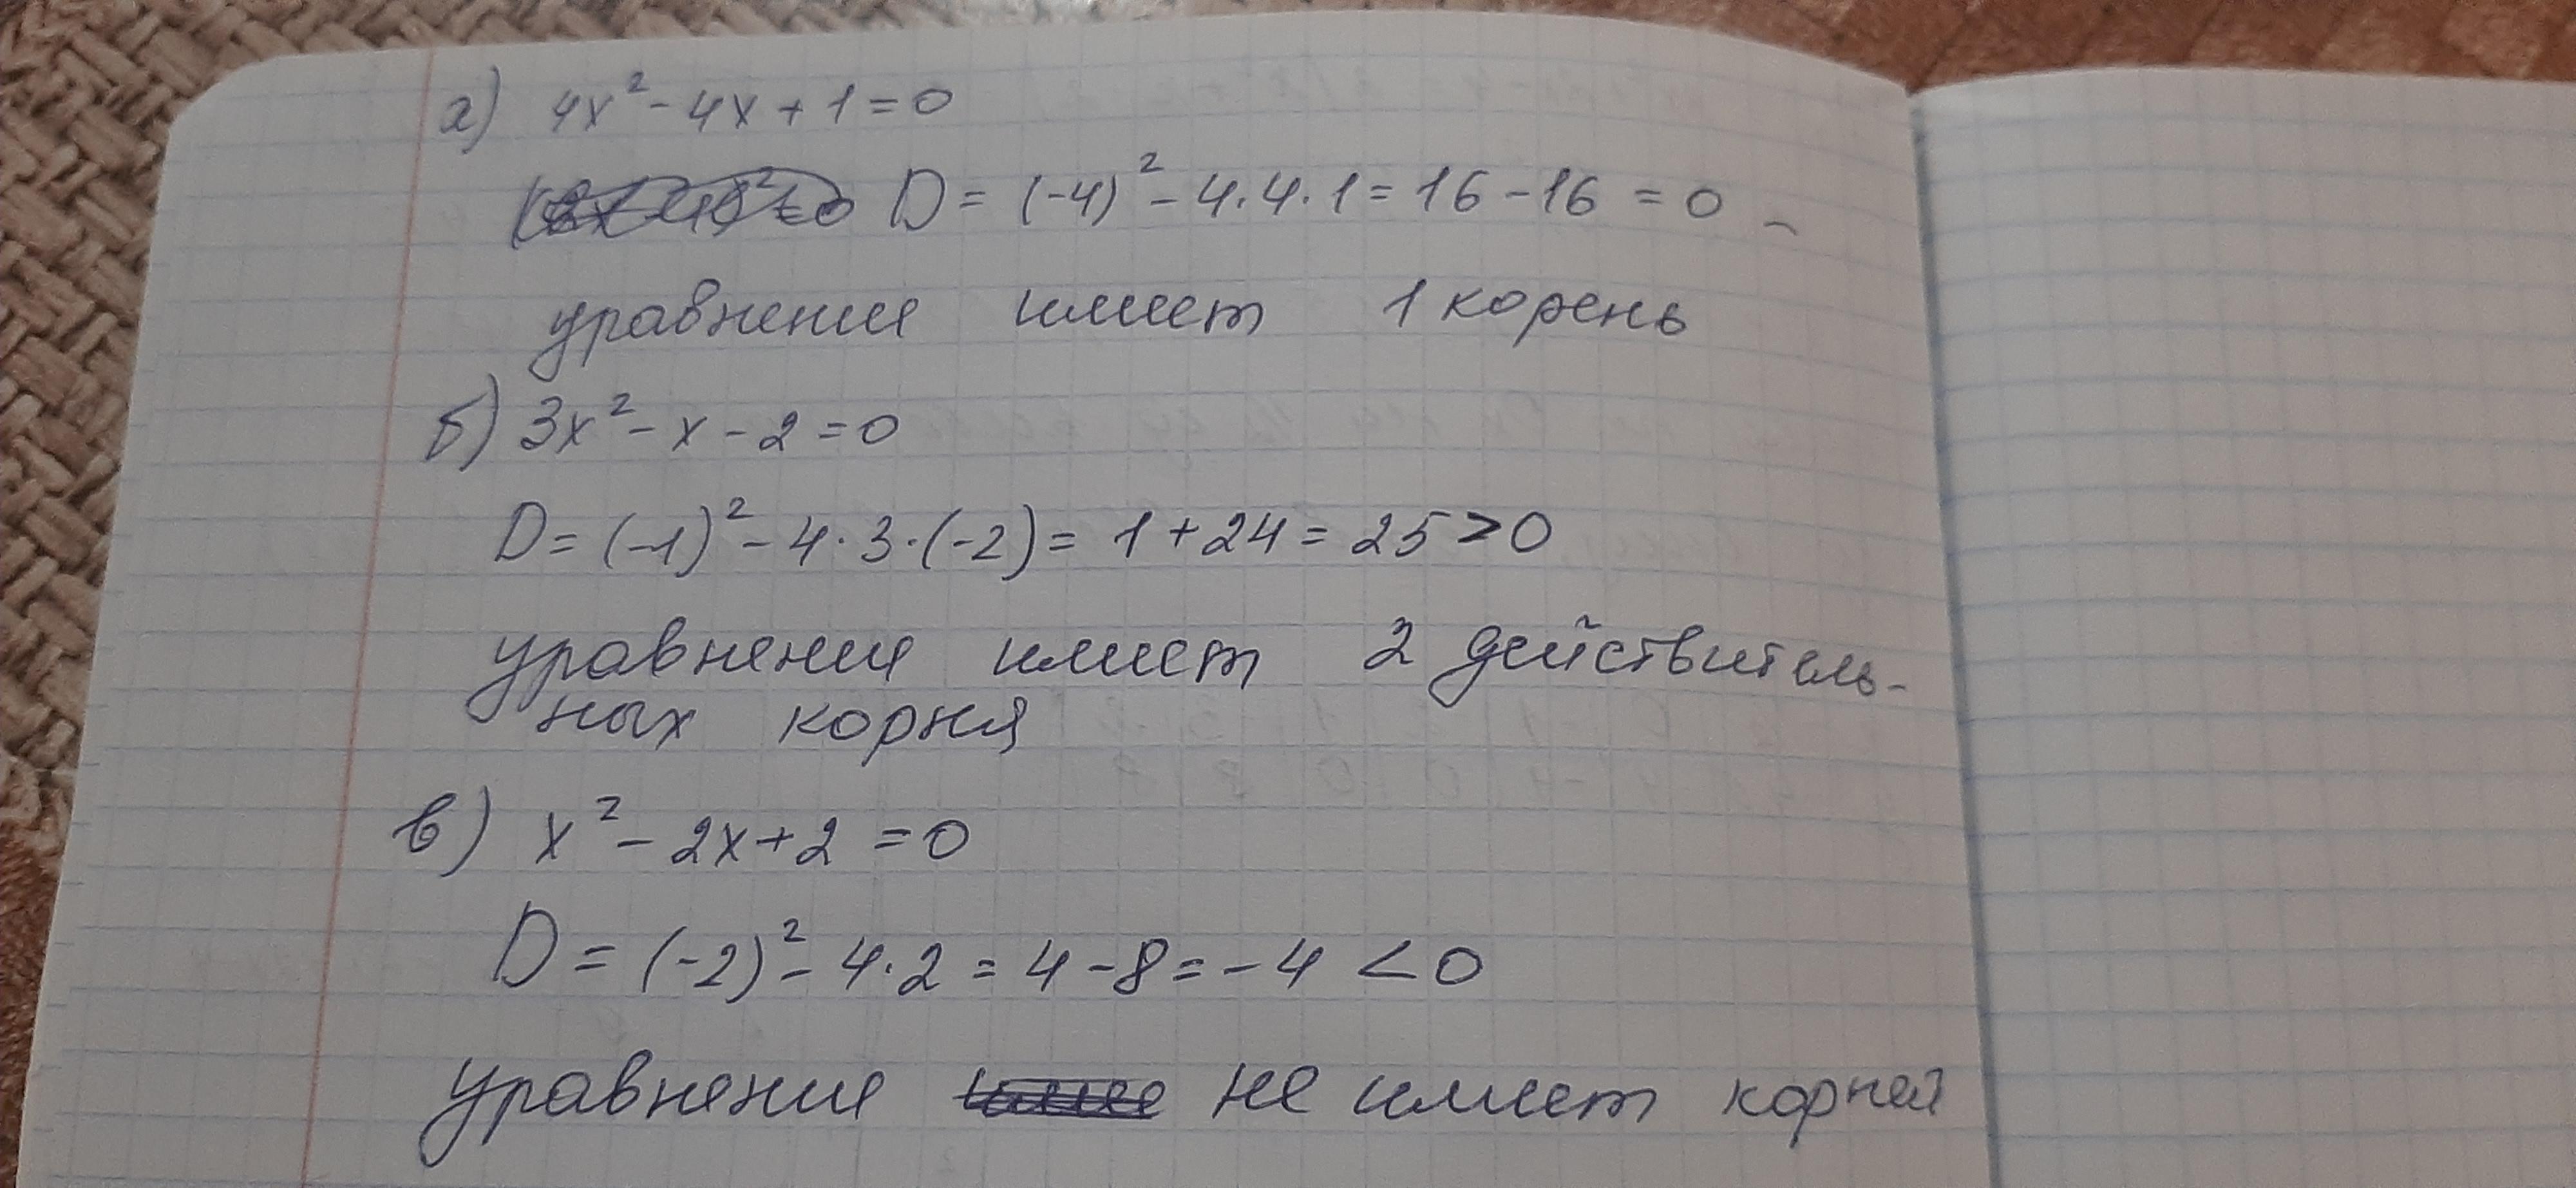 а) 4x² - 4x + 1 = 0
D = (-4)² - 4·4·1 = 16 - 16 = 0 -
уравнение имеет 1 корень
б) 3x² - x - 2 = 0
D = (-1)² - 4·3·(-2) = 1 + 24 = 25 > 0
уравнение имеет 2 действитель-
ных корня
в) x² - 2x + 2 = 0
D = (-2)² - 4·2 = 4 - 8 = -4 < 0
уравнение не имеет корней